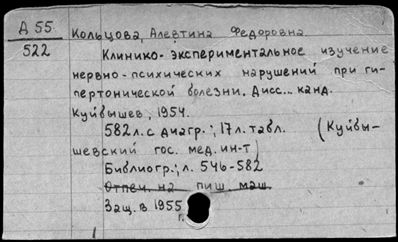 А 55
522
Кольцова, Алевтина Федоровна.
Клинико-экспериментальное изучение
нервно-психических нарушений при ги-
пертонической болезни. Дисс... канд.
Куйбышев, 1954.
582 л. с диагр.; 17 л. табл. (Куйбы-
шевский гос. мед. ин-т)
Библиогр.; л. 546-582
Отпеч. на пиш маш.
Защ. в 1955 г.